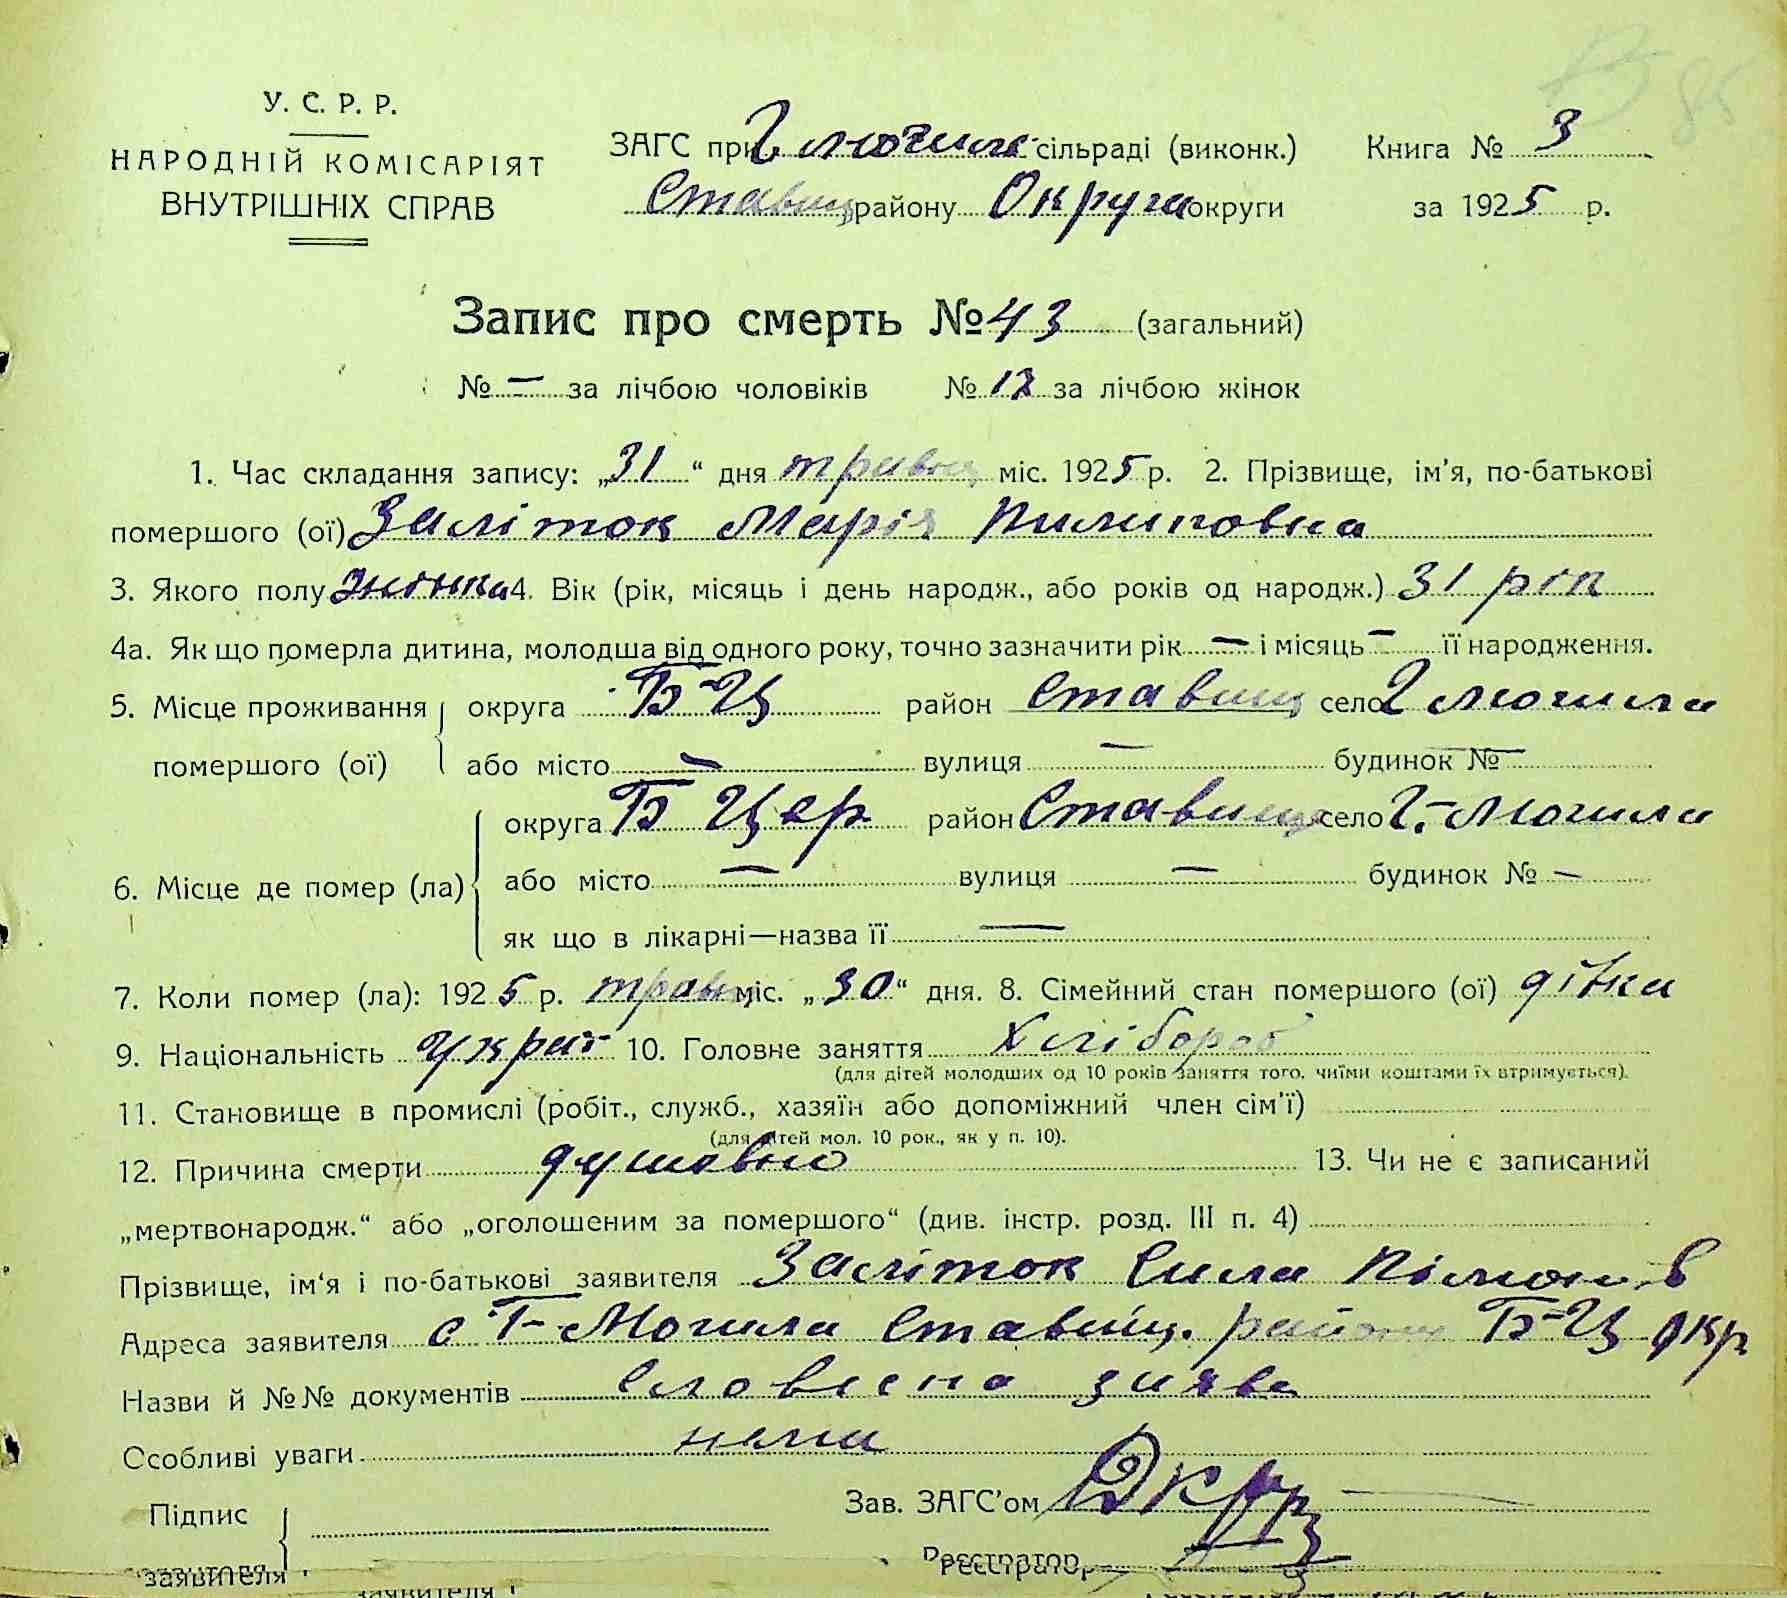 85
У. С. Р. Р.
НАРОДНІЙ КОМІСАРІЯТ
ВНУТРІШНІХ СПРАВ
ЗАГС при Г могил сільраді (виконк.) Книга № 3
Ставищ району Округи округи за 1925 р.
Запис про смерть № 43 (загальний)
№ — за лічбою чоловіків № 12 за лічбою жінок
1. Час складання запису: „31“ дня травня міс. 1925 р. 2. Прізвище, ім'я, по-батькові
помершого (ої) Заліток Марія Пилиповна
3. Якого полу жінка 4. Вік (рік, місяць і день народж., або років од народж.) 31 рік
4а. Як що померла дитина, молодша від одного року, точно зазначити рік — і місяць — її народження.
5. Місце проживання округа Б-Ц район Ставищ село Г могила
помершого (ої) або місто — вулиця — будинок № —
округа Б Цер район Ставище село Г.-Могила
6. Місце де помер (ла) або місто — вулиця — будинок № —
як що в лікарні—назва її —
7. Коли помер (ла): 1925 р. травня міс. „30“ дня. 8. Сімейний стан помершого (ої) дівка
9. Національність украї 10. Головне заняття Хлібороб
(для дітей молодших од 10 років заняття того, чиїми коштами їх втримується).
11. Становище в промислі (робіт., служб., хазяїн або допоміжний член сім'ї)
(для дітей мол. 10 рок., як у п. 10).
12. Причина смерти душовно 13. Чи не є записаний
„мертвонародж.“ або „оголошеним за помершого“ (див. інстр. розд. III п. 4)
Прізвище, ім'я і по-батькові заявителя Заліток Сила
Адреса заявителя с Г-Могила Ставищ. району Б-Ц окр
Назви й №№ документів Словесна заява
Особливі уваги нема
Підпис Зав. ЗАГС'ом
заявителя Реєстратор